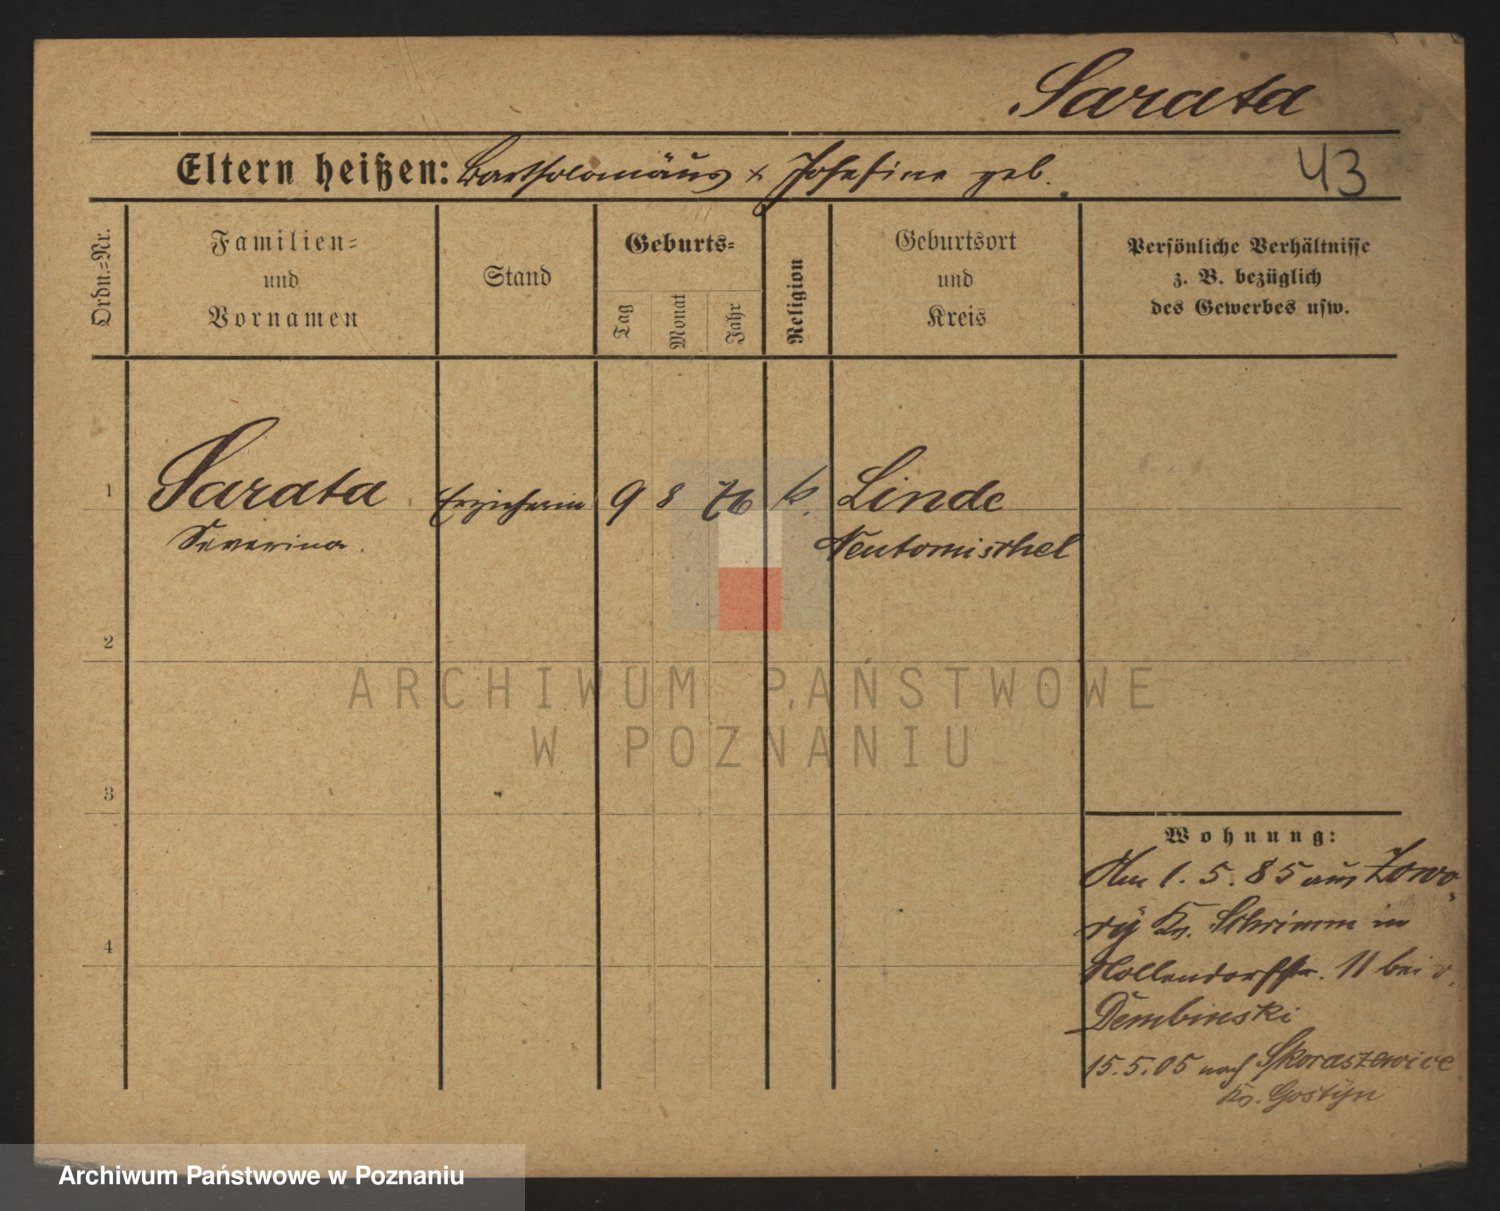 Sarata
Eltern heißen: Bartholomäus & Josefine geb.
43
Ordn.=Nr.
Familien=
und
Vornamen
Stand
Geburts=
Tag
Monat
Jahr
Religion
Geburtsort
und
Kreis
Persönliche Verhältnisse
z. B. bezüglich
des Gewerbes usw.
1
Sarata
Severina.
Erzieherin
9
8
76
k.
Linde
Neutomischel
2
3
4
ARCHIWUM PAŃSTWOWE
W POZNANIU
Wohnung:
1. 5. 85 aus
Kr. Schrimm in
Hollendorffstr. 11 bei v.
Dembinski
15.5.05 nach Skoraszewice
Kr. Gostyn
Archiwum Państwowe w Poznaniu